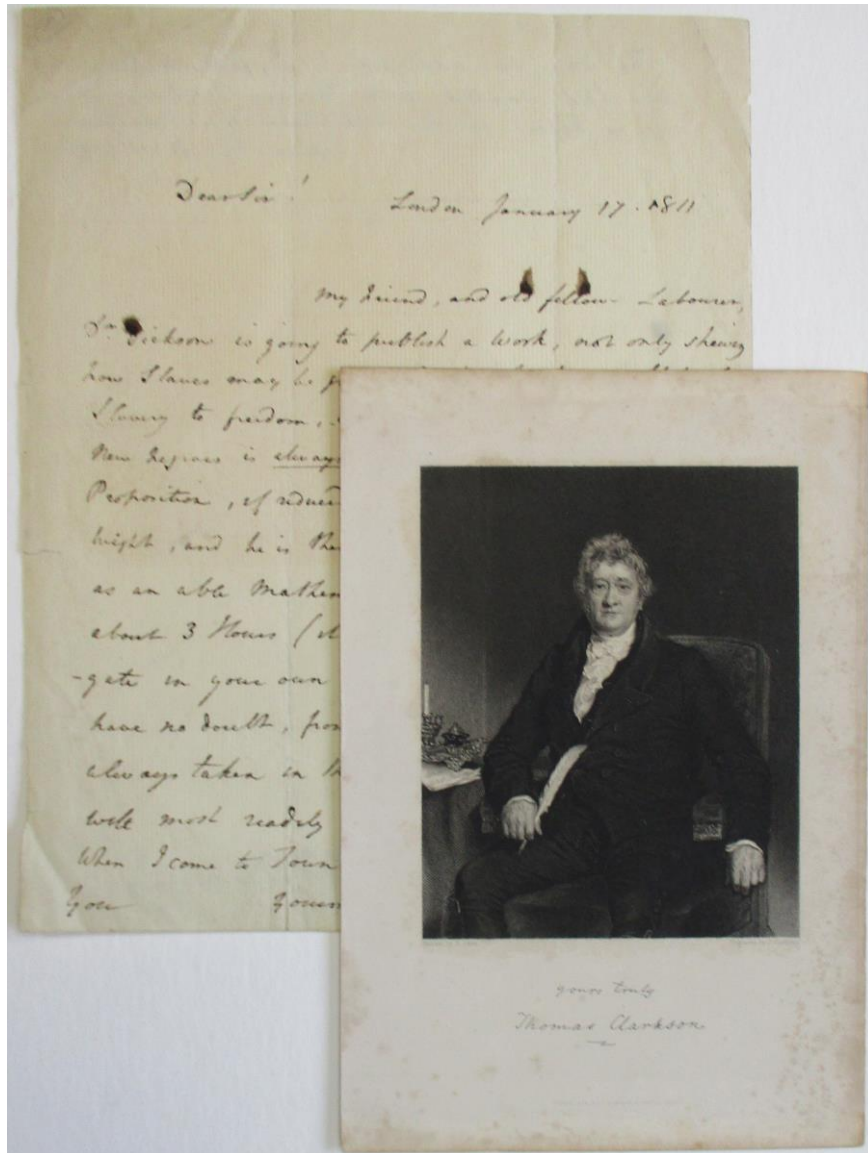 Dear Sir!
London January 17. 1811
My Friend, and old fellow-Labourer,
Dr. Dickson is going to publish a Work, not only shewing
how Slaves may be
Slavery to freedom,
New Negroes is always
Proposition, if reduced
might, and he is
as an able Mathem
about 3 Hours (
-gate in your own
have no doubt, from
always taken in th
will most readily
When I come to Town
You Yours
yours truly
Thomas Clarkson